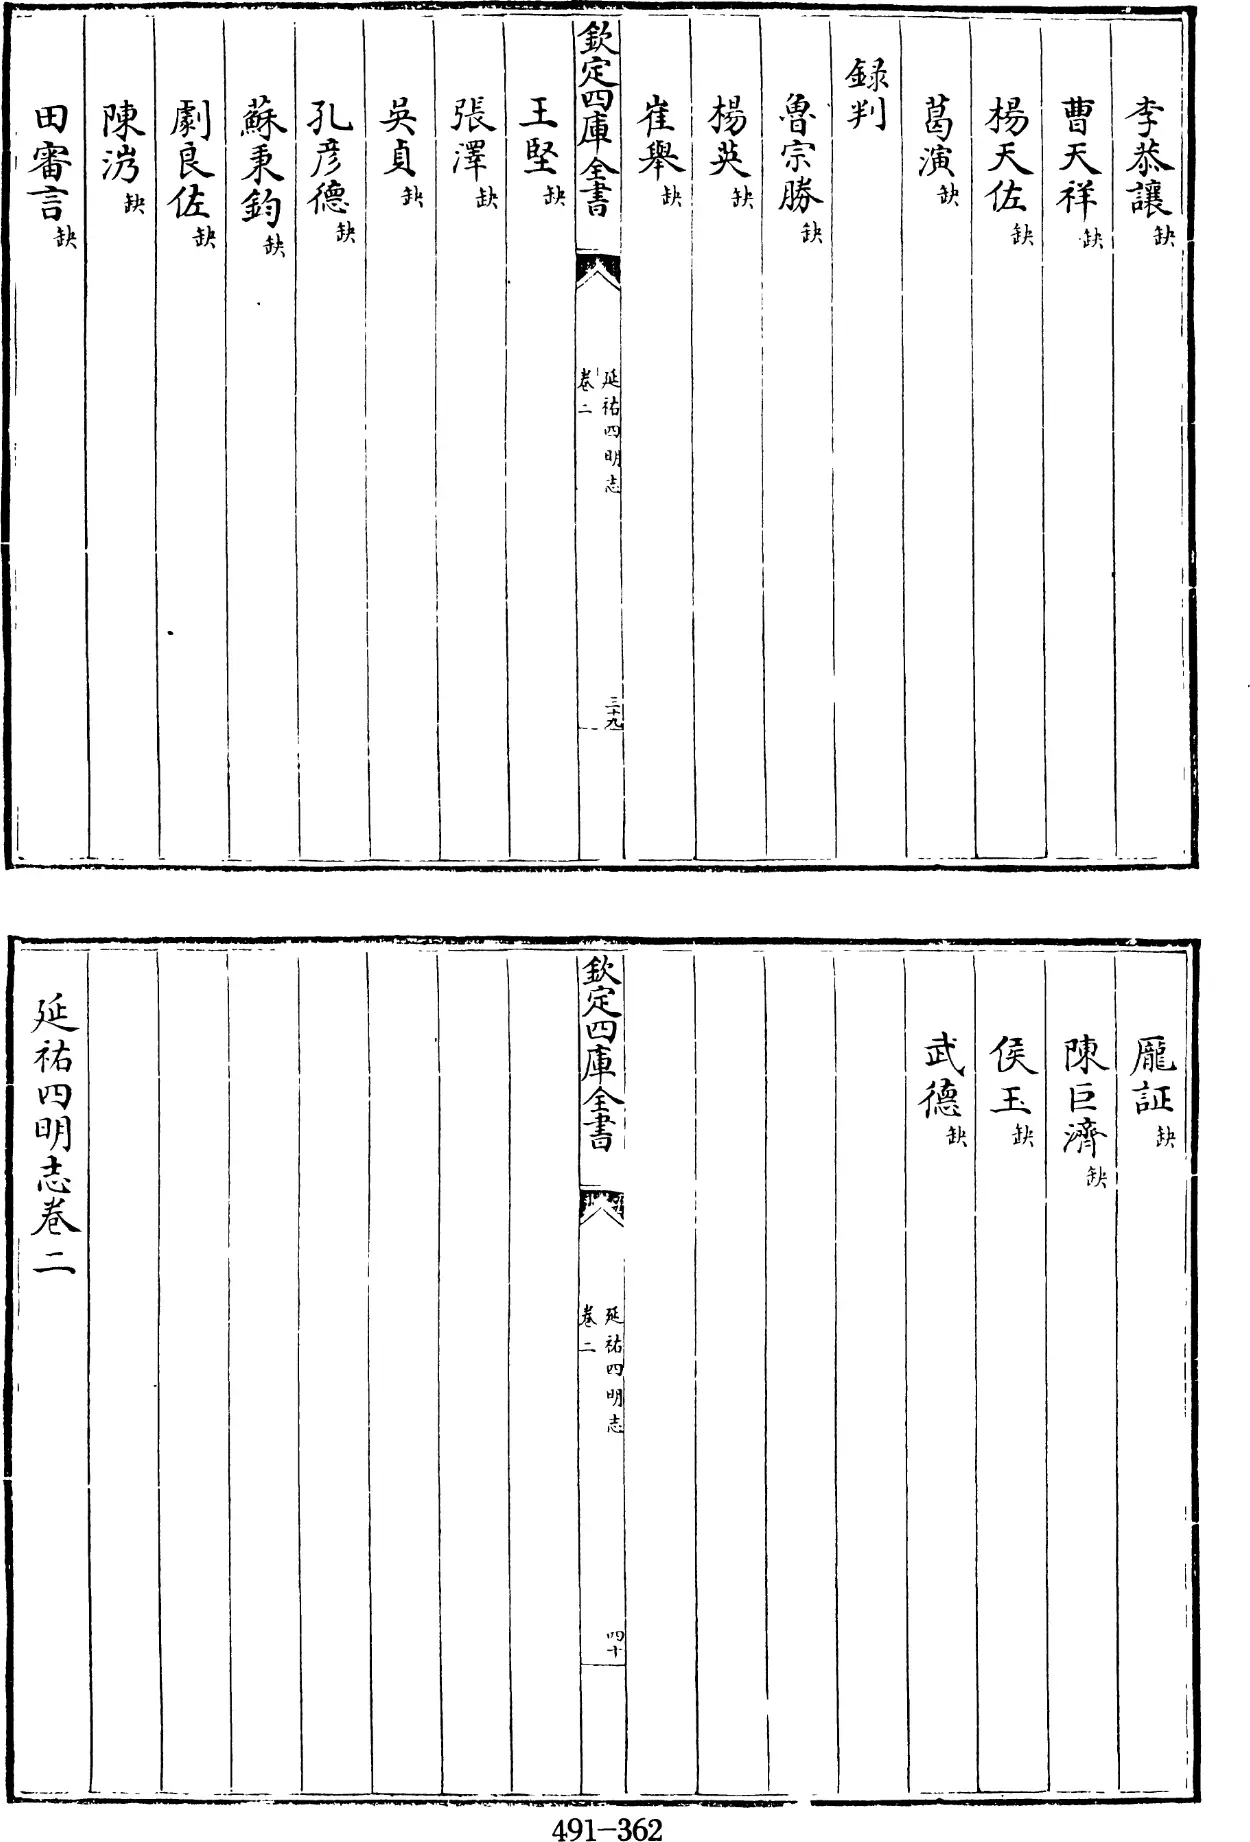 李恭讓缺
曹天祥缺
楊天佐缺
葛演缺
録判
魯宗勝缺
楊英缺
崔舉缺
欽定四庫全書
延祐四明志
卷二
三十九
王堅缺
張澤缺
吳貞缺
孔彦德缺
蘇秉鈞缺
劇良佐缺
陳涝缺
田審言缺
龎証缺
陳巨濟缺
侯玉缺
武德缺
欽定四庫全書
延祐四明志
卷二
四十
延祐四明志卷二
491-362